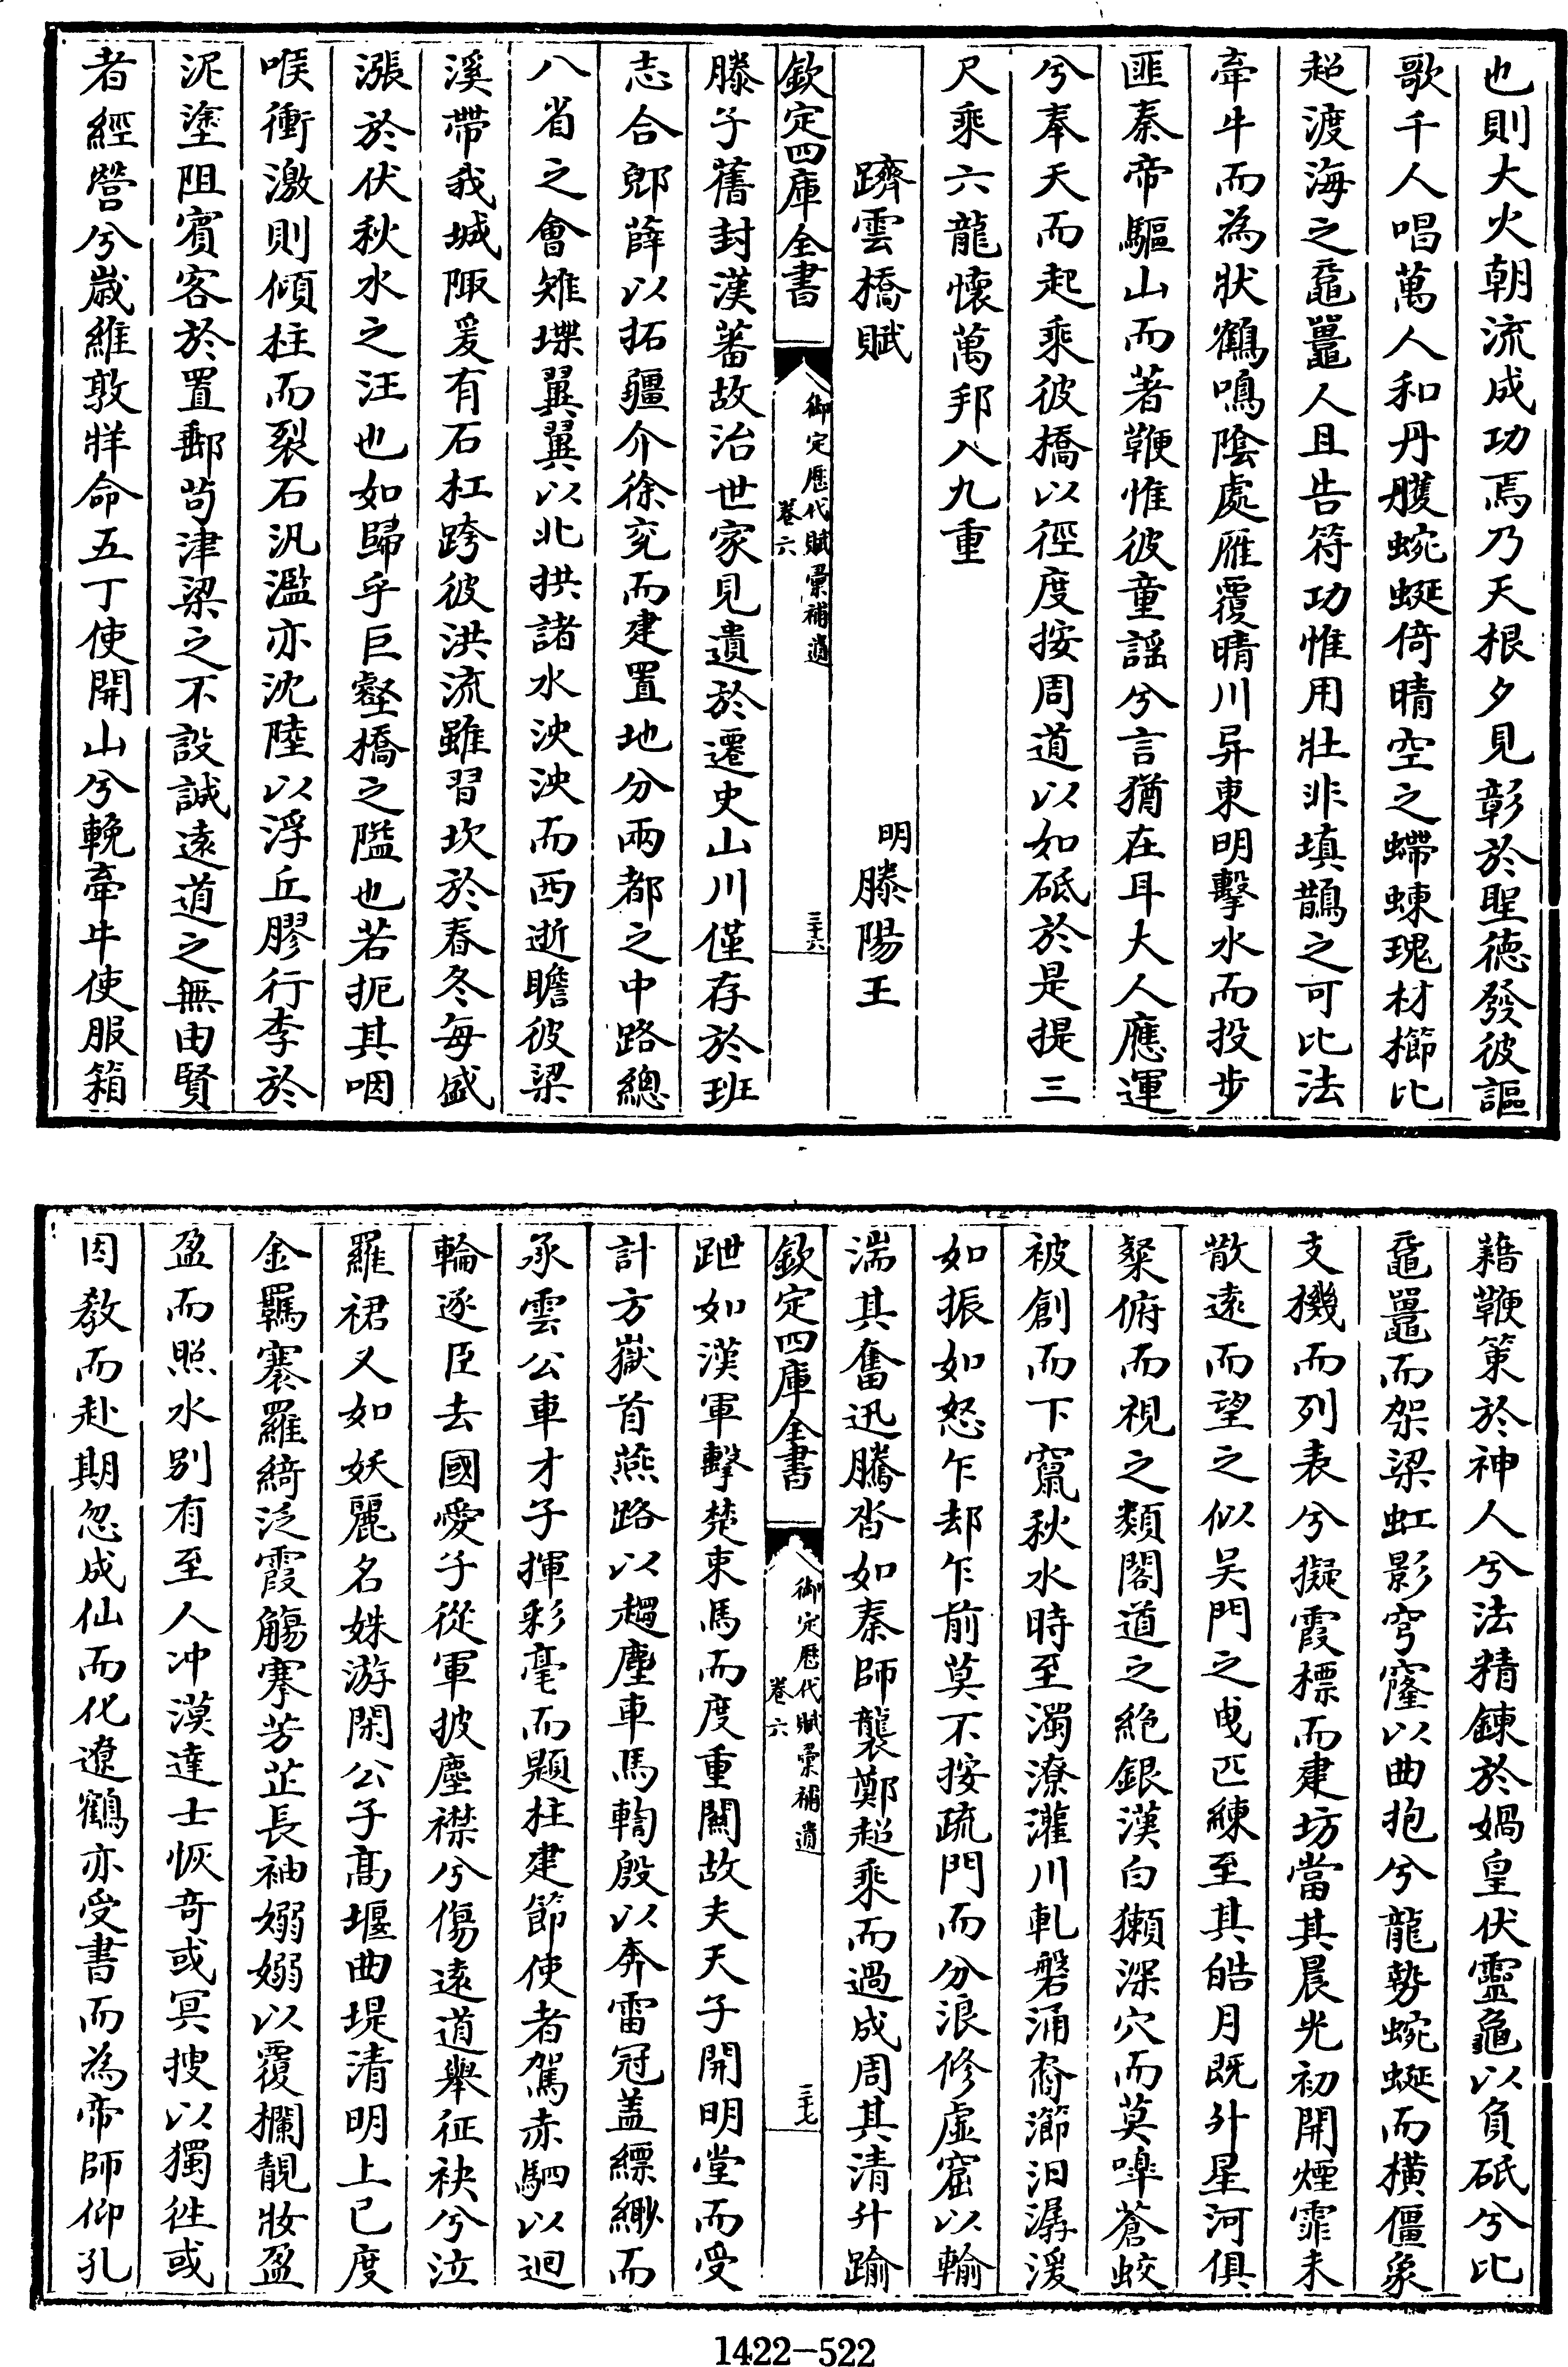 也則大火朝流成功焉乃天根夕見彰於聖德發彼謳
歌千人唱萬人和丹艧蜿蜒倚晴空之螮蝀瑰材櫛比
超渡海之黿鼉人且告符功惟用壯非填鵲之可比法
牽牛而為狀鶴鳴陰處雁覆晴川异東明擊水而投步
匪秦帝驅山而著鞭惟彼童謡兮言猶在耳大人應運
兮奉天而起乘彼橋以徑度按周道以如砥於是提三
尺乘六龍懷萬邦入九重
躋雲橋賦 明滕陽王
欽定四庫全書 御定歷代賦彚補遺 卷六 三十六
滕子舊封漢蕃故治世家見遺於遷史山川僅存於班
志合郳薛以拓疆介徐兗而建置地分兩都之中路總
八省之會雉堞翼翼以北拱諸水泱泱而西逝瞻彼梁
溪帶我城陬爰有石杠跨彼洪流雖習坎於春冬每盛
漲於伏秋水之汪也如歸乎巨壑橋之隘也若扼其咽
喉衝激則傾柱而裂石汎濫亦沈陸以浮丘膠行李於
泥塗阻賓客於置郵茍津梁之不設誠遠道之無由賢
者經營兮嵗維敦牂命五丁使開山兮輓牽牛使服箱
藉鞭策於神人兮法精鍊於媧皇伏靈龜以負砥兮比
黿鼉而架梁虹影穹窿以曲抱兮龍勢蜿蜒而橫僵象
支機而列表兮擬霞標而建坊當其晨光初開煙霏未
散遠而望之似吴門之曵匹練至其皓月既升星河俱
粲俯而視之類閣道之絶銀漢白獺深穴而莫嘷蒼蛟
被創而下竄秋水時至濁潦灌川軋磐涌裔㵧汨潺湲
如振如怒乍却乍前莫不按疏門而分浪修虚窟以輸
湍其奮迅騰沓如秦師襲鄭超乘而過成周其清升踰
欽定四庫全書 御定歷代賦彚補遺 卷六 三十七
跇如漢軍擊楚束馬而度重關故夫天子開明堂而受
計方嶽首燕路以趨塵車馬輷殷以奔雷冠盖縹緲而
承雲公車才子揮彩毫而題柱建節使者駕赤駟以迴
輪逐臣去國愛子從軍披塵襟兮傷遠道舉征袂兮泣
羅裙又如妖麗名姝游閑公子高堰曲堤清明上巳度
金羈褰羅綺泛霞觴搴芳芷長袖嫋嫋以覆欄靚妝盈
盈而照水别有至人冲漠達士恢奇或冥搜以獨徃或
因教而赴期忽成仙而化遼鶴亦受書而為帝師仰孔
1422-522